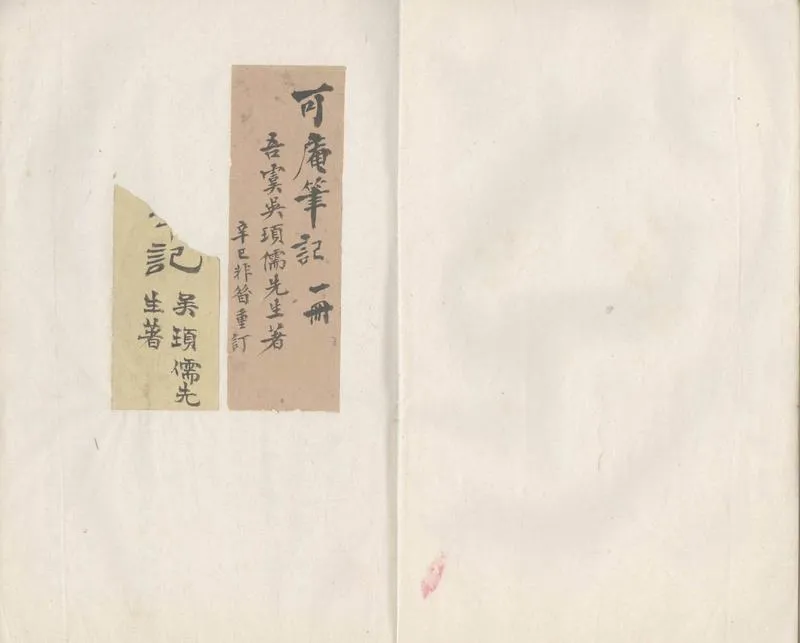 可庵筆記 一冊
吾虞吳頊儒先生著
辛巳非昔重訂
記
吳頊儒先
生著